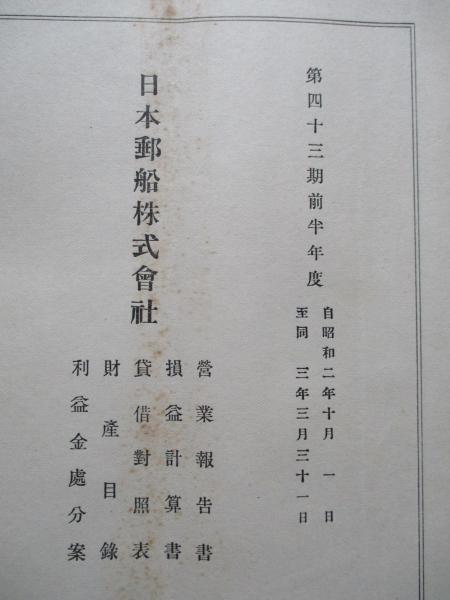 第四十三期前半年度
自昭和二年十月一日
至同三年三月三十一日
日本郵船株式會社
營業報告書
損益計算書
貸借對照表
財產目錄
利益金處分案